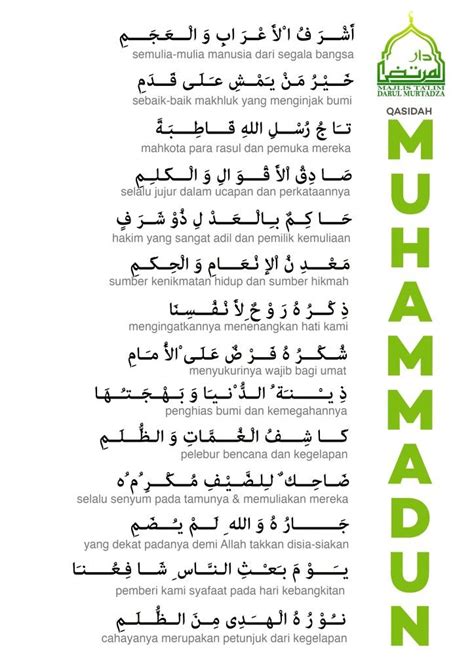 دار المرتضا
MAJLIS TA'LIM
DARUL MURTADZA
QASIDAH
MUHAMMADUN
أَشْرَفُ اْلأَعْرَابِ وَالْعَجَمِ
semulia-mulia manusia dari segala bangsa
خَيْرُ مَنْ يَمْشِ عَلَى قَدَمِ
sebaik-baik makhluk yang menginjak bumi
تَاجُ رُسِلِ اللهِ قَاطِبَةً
mahkota para rasul dan pemuka mereka
صَادِقُ اْلأَقْوَالِ وَالْكَلِمِ
selalu jujur dalam ucapan dan perkataannya
حَاكِمٌ بِالْعَدْلِ ذُوْ شَرَفٍ
hakim yang sangat adil dan pemilik kemuliaan
مَعْدِنُ اْلإِنْعَامِ وَالْحِكَمِ
sumber kenikmatan hidup dan sumber hikmah
ذِكْرُهُ رَوْحٌ ِلأَنْفُسِنَا
mengingatkannya menenangkan hati kami
شُكْرُهُ فَرْضٌ عَلَى اْلأُمَامِ
menyukurinya wajib bagi umat
ذِيْنَةُ الدُّنْيَا وَبَهْجَتُهَا
penghias bumi dan kemegahannya
كَاشِفُ الْغُمَّاتِ وَالظُّلَمِ
pelebur bencana dan kegelapan
ضَاحِكٌ لِلضَّيْفِ مُكْرِمُهُ
selalu senyum pada tamunya & memuliakan mereka
جَارُهُ وَاللهِ لَمْ يُضَمِ
yang dekat padanya demi Allah takkan disia-siakan
يَوْمَ بَعْثِ النَّاسِ شَافِعُنَا
pemberi kami syafaat pada hari kebangkitan
نُوْرُهُ الْهَدِى مِنَ الظُّلَمِ
cahayanya merupakan petunjuk dari kegelapan